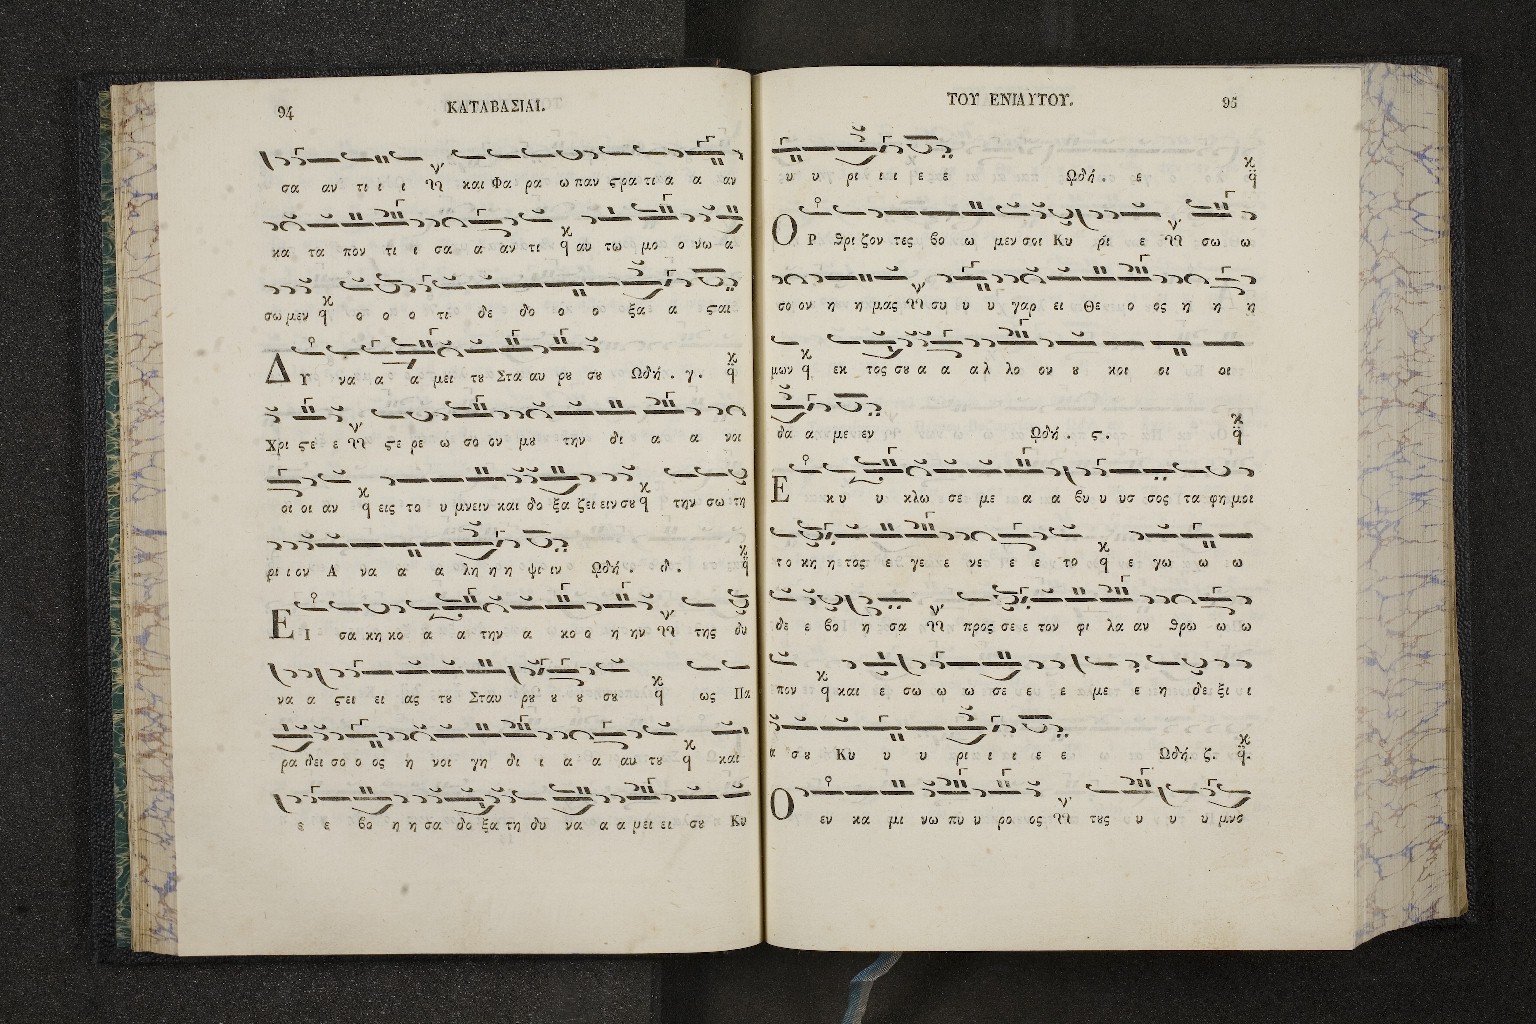 94 ΚΑΤΑΒΑΣΙΑΙ.
σα αν τι ι ι και Φα ρα ω παν ϛρα τι α α αν
κα τα πον τι ι σα α αν τι αυ τω μο ο νω α
σω μεν ο ο ο τι δε δο ο ο ξα α ϛαι
Δ Υ να α α μει τȣ Στα αυ ρȣ σȣ Ωδή . γ .
Χρι ϛε ε ϛε ρε ω σο ον μȣ την δι α α νοι
οι οι αν εις το υ μνειν και δο ξα ζει ειν σȣ την σω τη
ρι ι ον Α να α α λη η η ψι ιν Ωδή . δ .
Ε Ι σα κη κο α α την α κο ο η ην της δυ
να α ϛει ει ας τȣ Σταυ ρȣ ȣ ȣ σȣ ως Πα
ρα δει σο ο ος ή νοι γη δι ι α α αυ τȣ και
ε ε βο η η σα δο ξα τη δυ να α α μει ει σȣ Κυ
ΤΟΥ ΕΝΙΑΥΤΟΥ. 95
υ υ ρι ι ι ε ε Ωδή . ε
Ο Ρ θρι ζον τες βο ω μεν σοι Κυ ρι ε σω ω
σο ον η η μας συ υ υ γαρ ει Θε ο ος η η η
μων εκ τος σȣ α α αλ λο ον ȣ κοι οι οι
δα α με εν Ωδή . ϛ .
Ε κυ υ κλω σε με α α βυ υ υσ σος τα φη μοι
το κη η τος ε γε ε νε ε ε το ε γω ω ω
δε ε βο η σα προς σε ε τον φι λα αν θρω ω ω
πον και ε σω ω ω σε ε ε με ε η δε ξι ι
α σȣ Κυ υ υ ρι ι ι ε ε Ωδή . ζ .
Ο εν κα μι νω πυ υ ρο ος τȣς υ υ υ μνȣ